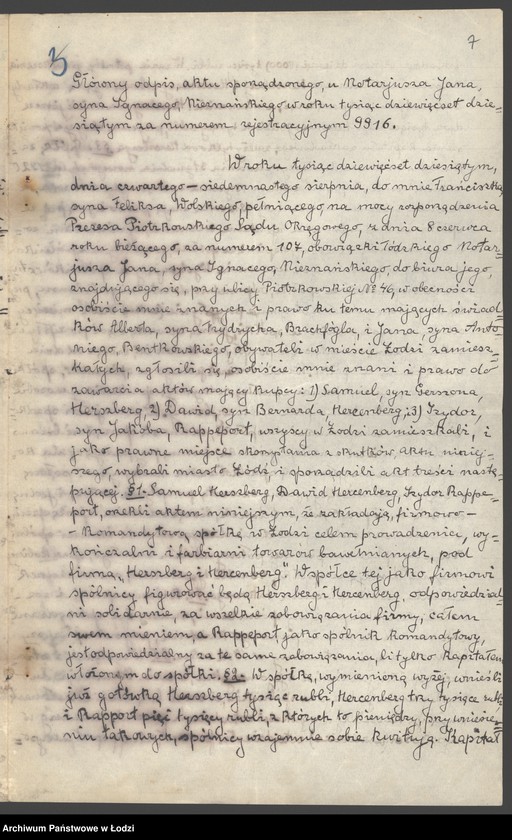 7
3
Główny odpis, aktu sporządzonego, u Notarjusza Jana,
syna Ignacego, Nieznańskiego w roku tysiąc dziewięćset dzie-
siątym za numerem rejestracyjnym 9916.
W roku tysiąc dziewięćset dziesiątym,
dnia czwartego - siedemnastego sierpnia, do mnie Franciszka
syna Feliksa, Wolskiego, pełniącego na mocy rozporządzenia
Prezesa Piotrkowskiego Sądu Okręgowego, z dnia 8 czerwca
roku bieżącego, za numerem 107, obowiązki Łódzkiego Notar-
jusza Jana, syna Ignacego, Nieznańskiego, do biura jego,
znajdującego się, przy ulicy Piotrkowskiej № 46, w obecności
osobiście mnie znanych i prawo ku temu mających świad-
ków Alberta, syna Frydrycha, Brachfogla, i Jana, syna Anto-
niego, Bentkowskiego, obywateli w mieście Łodzi zamiesz-
kałych, zgłosili się, osobiście mnie znani i prawo do
zawarcia aktów mający kupcy: 1) Samuel, syn Gerszona,
Herszberg, 2) Dawid, syn Bernarda, Hercenberg, i 3) Izydor,
syn Jakóba, Rappeport, wszyscy w Łodzi zamieszkali, i
jako prawne miejsce skorzystania z skutków, aktu niniej-
szego, wybrali miasto Łódź, i sporządzili akt treści nastę-
pującej. §1. Samuel Herszberg, Dawid Hercenberg, Izydor Rappe-
port, orzekli aktem niniejszym, że zakładają, firmowo -
- Komandytową spółkę w Łodzi celem prowadzenia, wy-
kończalni i farbiarni towarów bawełnianych, pod
firmą „Herszberg i Hercenberg". W spółce tej jako firmowi
spólnicy figurować będą Herszberg i Hercenberg, odpowiedzial-
ni solidarnie, za wszelkie zobowiązania firmy, całem
swem mieniem, a Rappeport jako spólnik komandytowy,
jest odpowiedzialny za te same zobowiązania, li tylko kapitałem
włożonem do spółki. §2. W spółkę, wymienioną wyżej, wnieśli
już gotówką Herszberg tysiąc rubli, Hercenberg trzy tysiące rubli
i Rapport pięć tysięcy rubli, z których to pieniędzy, przy wniesie-
niu takowych, spólnicy wzajemnie sobie kwitują. Kapitał
Archiwum Państwowe w Łodzi